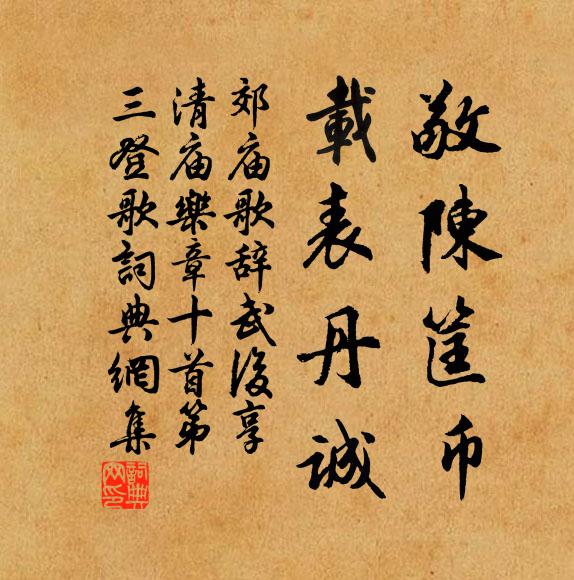 敬陳筐币
載表丹誠
郊庙歌辞武後享
清庙樂章十首第
三登歌詞典網集
詞典网印